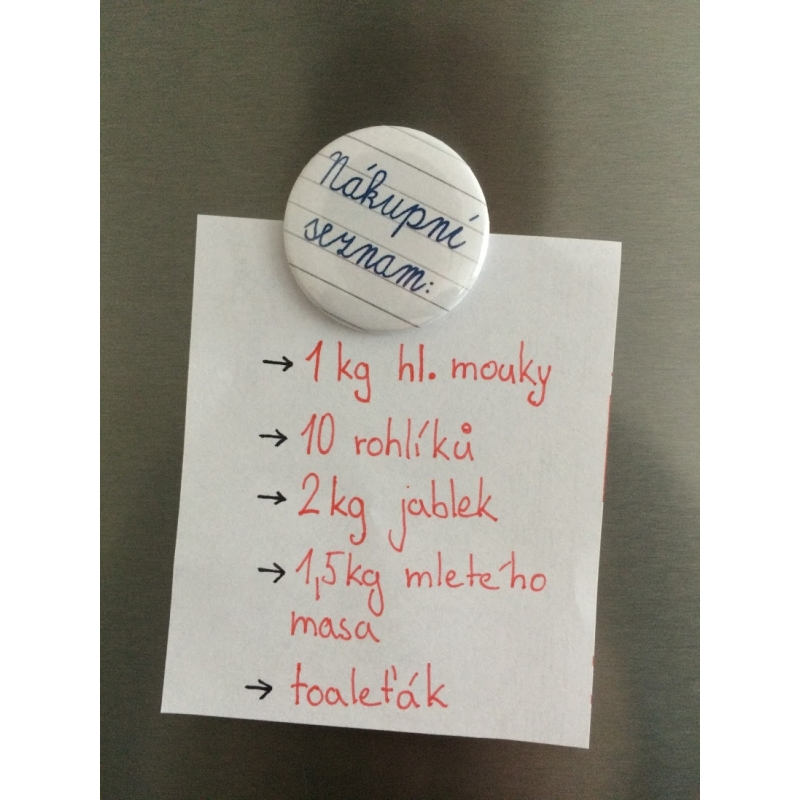 Nákupní
seznam:
→ 1 kg hl. mouky
→ 10 rohlíků
→ 2 kg jablek
→ 1,5 kg mletého
masa
→ toaleťák